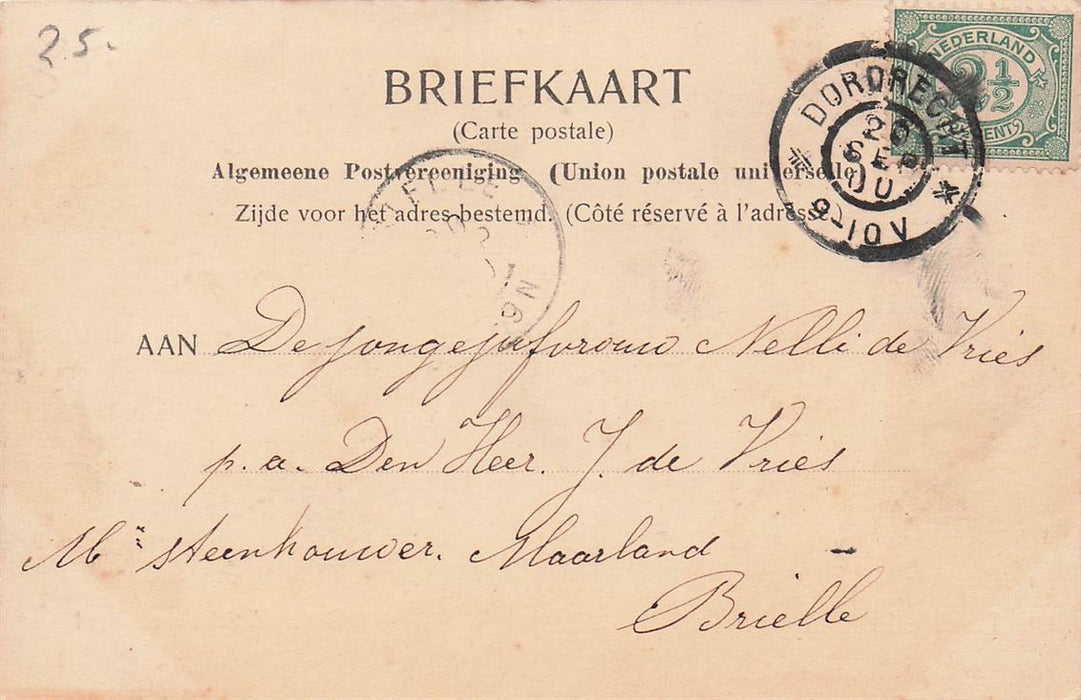 2.5.
NEDERLAND
2 1/2
CENT
BRIEFKAART
(Carte postale)
Algemeene Postvereeniging (Union postale universelle)
Zijde voor het adres bestemd. (Côté réservé à l'adresse)
DORDRECHT
26
SEP
00
9-10V
9N
AAN De jongejufvrouw Nelli de Vries
p.a. Den Heer. J. de Vries
Mr. steenhouwer. Maarland –
Brielle